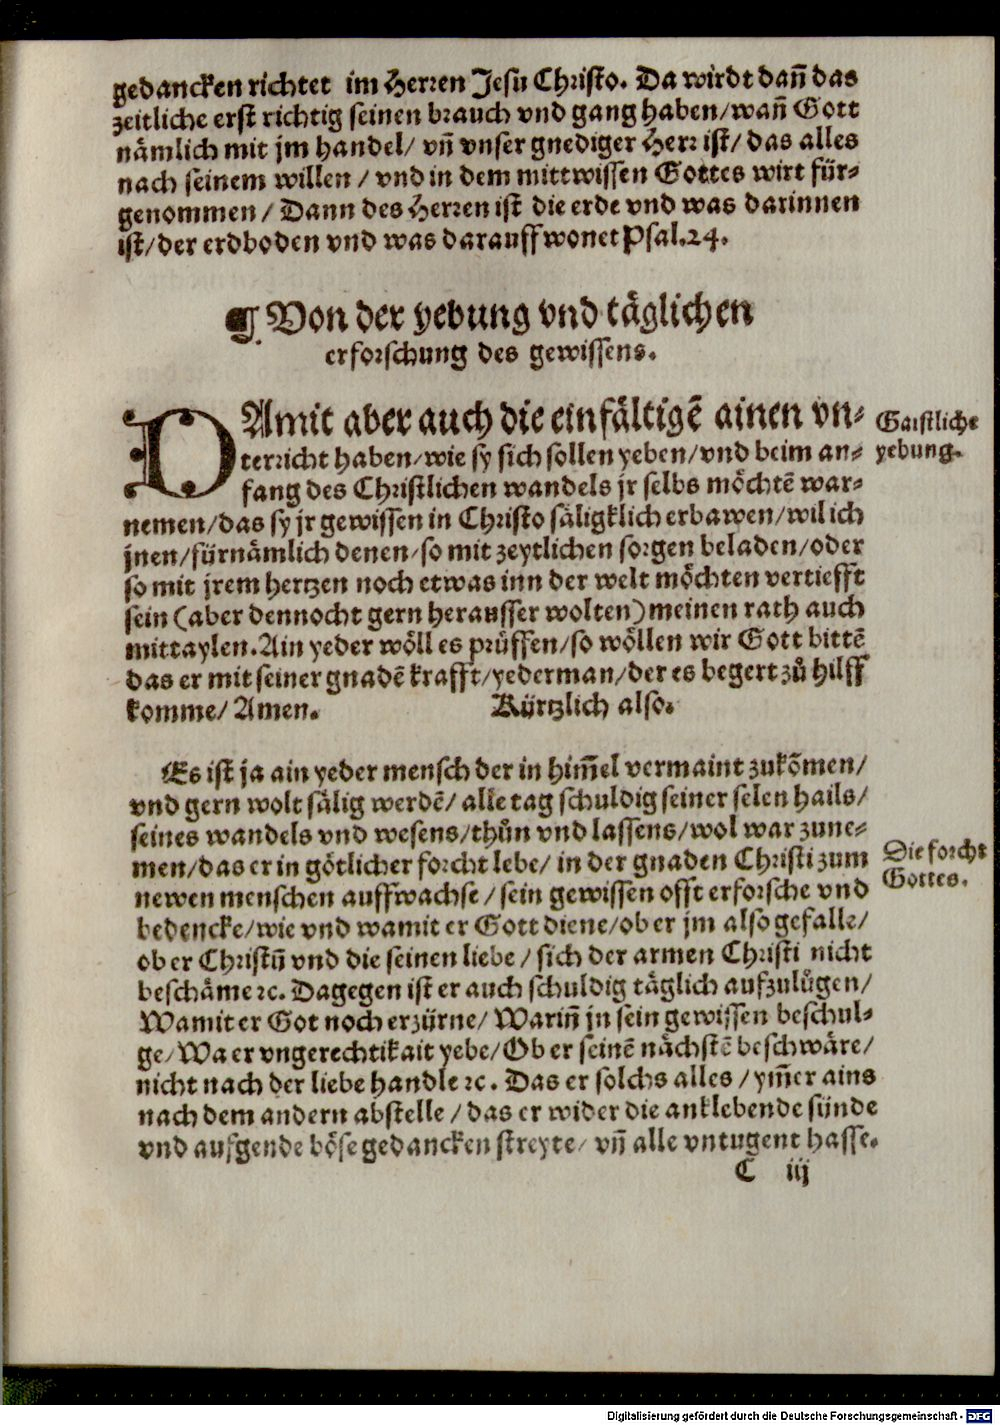 gedancken richtet im Herren Jesu Christo. Da wirdt dañ das
zeitliche erst richtig seinen brauch vnd gang haben/wañ Gott
nämlich mit jm handel/ vñ vnser gnediger Herr ist/ das alles
nach seinem willen / vnd in dem mittwissen Gottes wirt für-
genommen / Dann des Herren ist die erde vnd was darinnen
ist/der erdboden vnd was darauff wonet Psal.24.
¶ Von der yebung vnd täglichen
erforschung des gewissens.
DAmit aber auch die einfältigẽ ainen vn-
terricht haben/wie sy sich sollen yeben/vnd beim an-
fang des Christlichen wandels jr selbs möchtẽ war-
nemen/das sy jr gewissen in Christo säligklich erbawen/wil ich
jnen/fürnämlich denen/so mit zeytlichen sorgen beladen/oder
so mit jrem hertzen noch etwas inn der welt möchten vertiefft
sein (aber dennocht gern herausser wolten) meinen rath auch
mittaylen. Ain yeder wöll es prüffen/so wöllen wir Gott bittẽ
das er mit seiner gnadẽ krafft/yederman/der es begert zů hilff
komme/ Amen. Kürtzlich also.
Gaistliche
yebung.
Es ist ja ain yeder mensch der in him̃el vermaint zukõmen/
vnd gern wolt sälig werdẽ/ alle tag schuldig seiner selen hails/
seines wandels vnd wesens/thůn vnd lassens/wol war zune-
men/das er in götlicher forcht lebe/ in der gnaden Christi zum
newen menschen auffwachse / sein gewissen offt erforsche vnd
bedencke/wie vnd wamit er Gott diene/ob er jm also gefalle/
ob er Christũ vnd die seinen liebe / sich der armen Christi nicht
beschäme ꝛc. Dagegen ist er auch schuldig täglich aufzulůgen/
Wamit er Got noch erzürne/ Wariñ jn sein gewissen beschul-
ge/Wa er vngerechtikait yebe/Ob er seinẽ nächstẽ beschwäre/
nicht nach der liebe handle ꝛc. Das er solchs alles / ym̃er ains
nach dem andern abstelle / das er wider die anklebende sünde
vnd aufgende böse gedancken streyte/ vñ alle vntugent hasse.
Die forcht
Gottes.
C iij
Digitalisierung gefördert durch die Deutsche Forschungsgemeinschaft - DFG